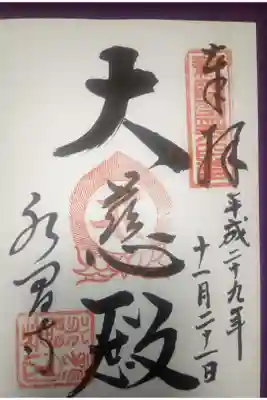 奉拝
平成二十九年
十一月二十一日
大慈殿
永観寺